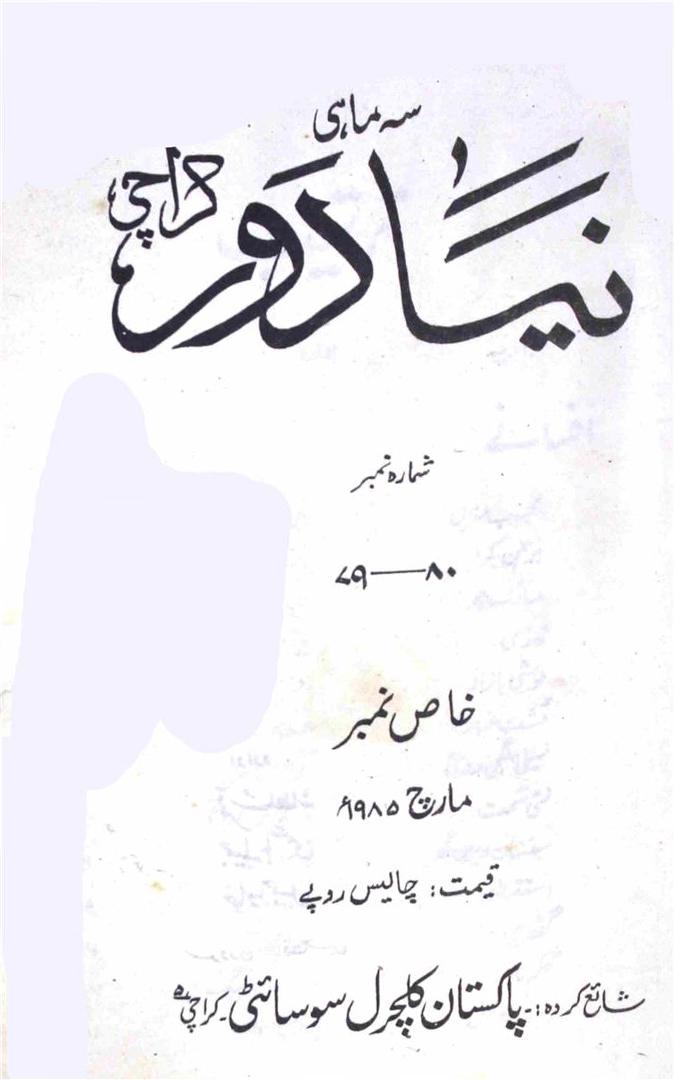 سہ ماہی
نیا دَور کراچی
شمارہ نمبر
۷۹—۸۰
خاص نمبر
مارچ ۱۹۸۵ء
قیمت: چالیس روپے
شائع کردہ:۔ پاکستان کلچرل سوسائٹی۔ کراچی ۵